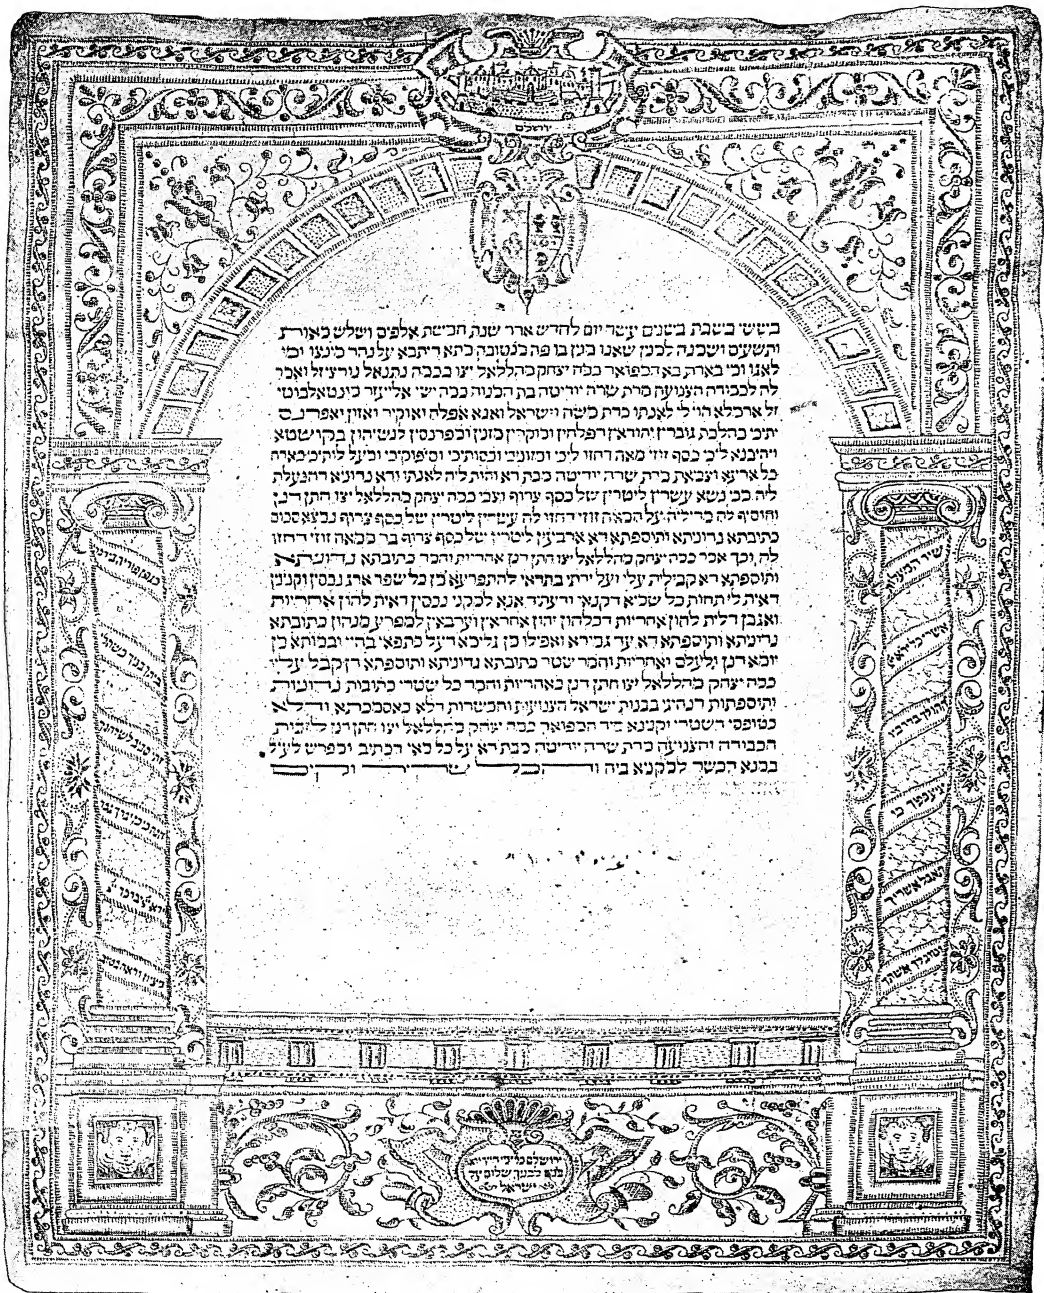 ירושלם
בששי בשבת בשנים עשר יום לחדש אדר שנת חמשת אלפים ושלש מאורת
ותשעים ושמנה למנין שאנו מנין בו פה מנטובה מתא דיתבא על נהר מינצו ומי
לאגו ומי בארת בא המפואר כמה יצחק מהללאל יצו בכמה נתנאל נורציזל ואמר
לה לכבודה הצנועה מרת שרה יודיטה בת המנוח כמה ישי אליעזר
זל ארמלא הוי לי לאנתו כדת משה וישראל ואנא אפלח ואוקיר ואזון ואפרנס
יתיכי כהלכת גוברין יהודאין דפלחין ומוקרין וזנין ומפרנסין לנשיהון בקושטא
ויהיבנא ליכי כסף זוזי מאה דחזו ליכי ומזוניכי וכסותיכי וסיפוקיכי ומיעל לותיכי כארח
כל ארעא וצביאת מרת שרה יודיטה מבת דא והות ליה לאנתו ודא נדוניא דהנעלת
ליה מבי נשא עשרין ליטרין של כסף צרוף וצבי כמה יצחק מהללאל יצו חתן דנן
והוסיף לה מדיליה על המאה זוזי דחזו לה עשרין ליטרין של כסף צרוף נמצא סכום
כתובתא נדוניתא ותוספתא דא ארבעין ליטרין של כסף צרוף בר ממאה זוזי דחזו
לה וכך אמר כמה יצחק מהללאל יצו חתן דנן אחריות וחמר כתובתא נדוניתא
ותוספתא דא קבילית עלי ועל ירתי בתראי להתפרעא מן כל שפר ארג נכסין וקנינין
דאית לי תחות כל שמיא דקנאי ודעתיד אנא למקני נכסין דאית להון אחריות
ואגבן דלית להון אחריות דכלהון יהון אחראין וערבאין למפרע מנהון כתובתא
נדוניתא ותוספתא דא עד גמירא ואפילו מן גלימא דעל כתפאי בחיי ובמותא מן
יומא דנן ולעלם ואחריות וחמר שטר כתובתא נדוניתא ותוספתא דן קבל עליו
כמה יצחק מהללאל יצו חתן דנן כאחריות וחמר כל שטרי כתובות נדוניות
ותוספתות דנהיגי בבנות ישראל הצנועות והכשרות דלא כאסמכתא ודלא
כטופסי דשטרי וקנינא מיד המפואר כמה יצחק מהללאל יצו חתן דנן לזכות
הכבודה והצנועה מרת שרה יודיטה מבת דא על כל מאי דכתיב ומפרש לעיל
במנא הכשר למקניא ביה והכל שריר וקים
שיר המעלות
אשרי כל ירא יי
ההולך בדרכיו
יגיע כפיך כי
תאכל אשריך
וטוב לך אשתך
כגפן פוריה בירכתי
ביתך בניך כשתילי
זיתים סביב לשלחנך
הנה כי כן יבורך גבר
ירא יי יברכך יי
מציון וראה בטוב
ירושלם כל ימי חייך ורא
בנים לבניך שלום על
ישראל